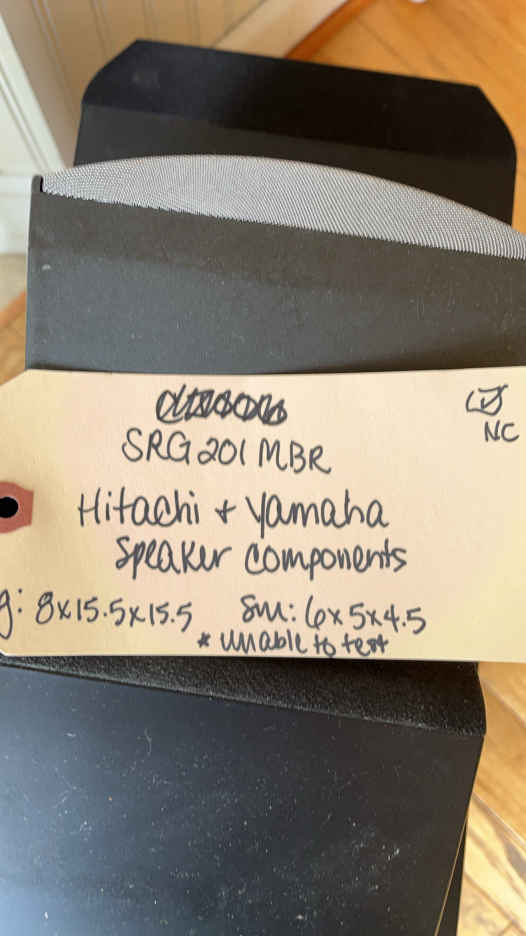 SRG201MBR
NC
Hitachi + Yamaha
Speaker Components
g: 8x15.5x15.5 Sm: 6x5x4.5
* unable to test